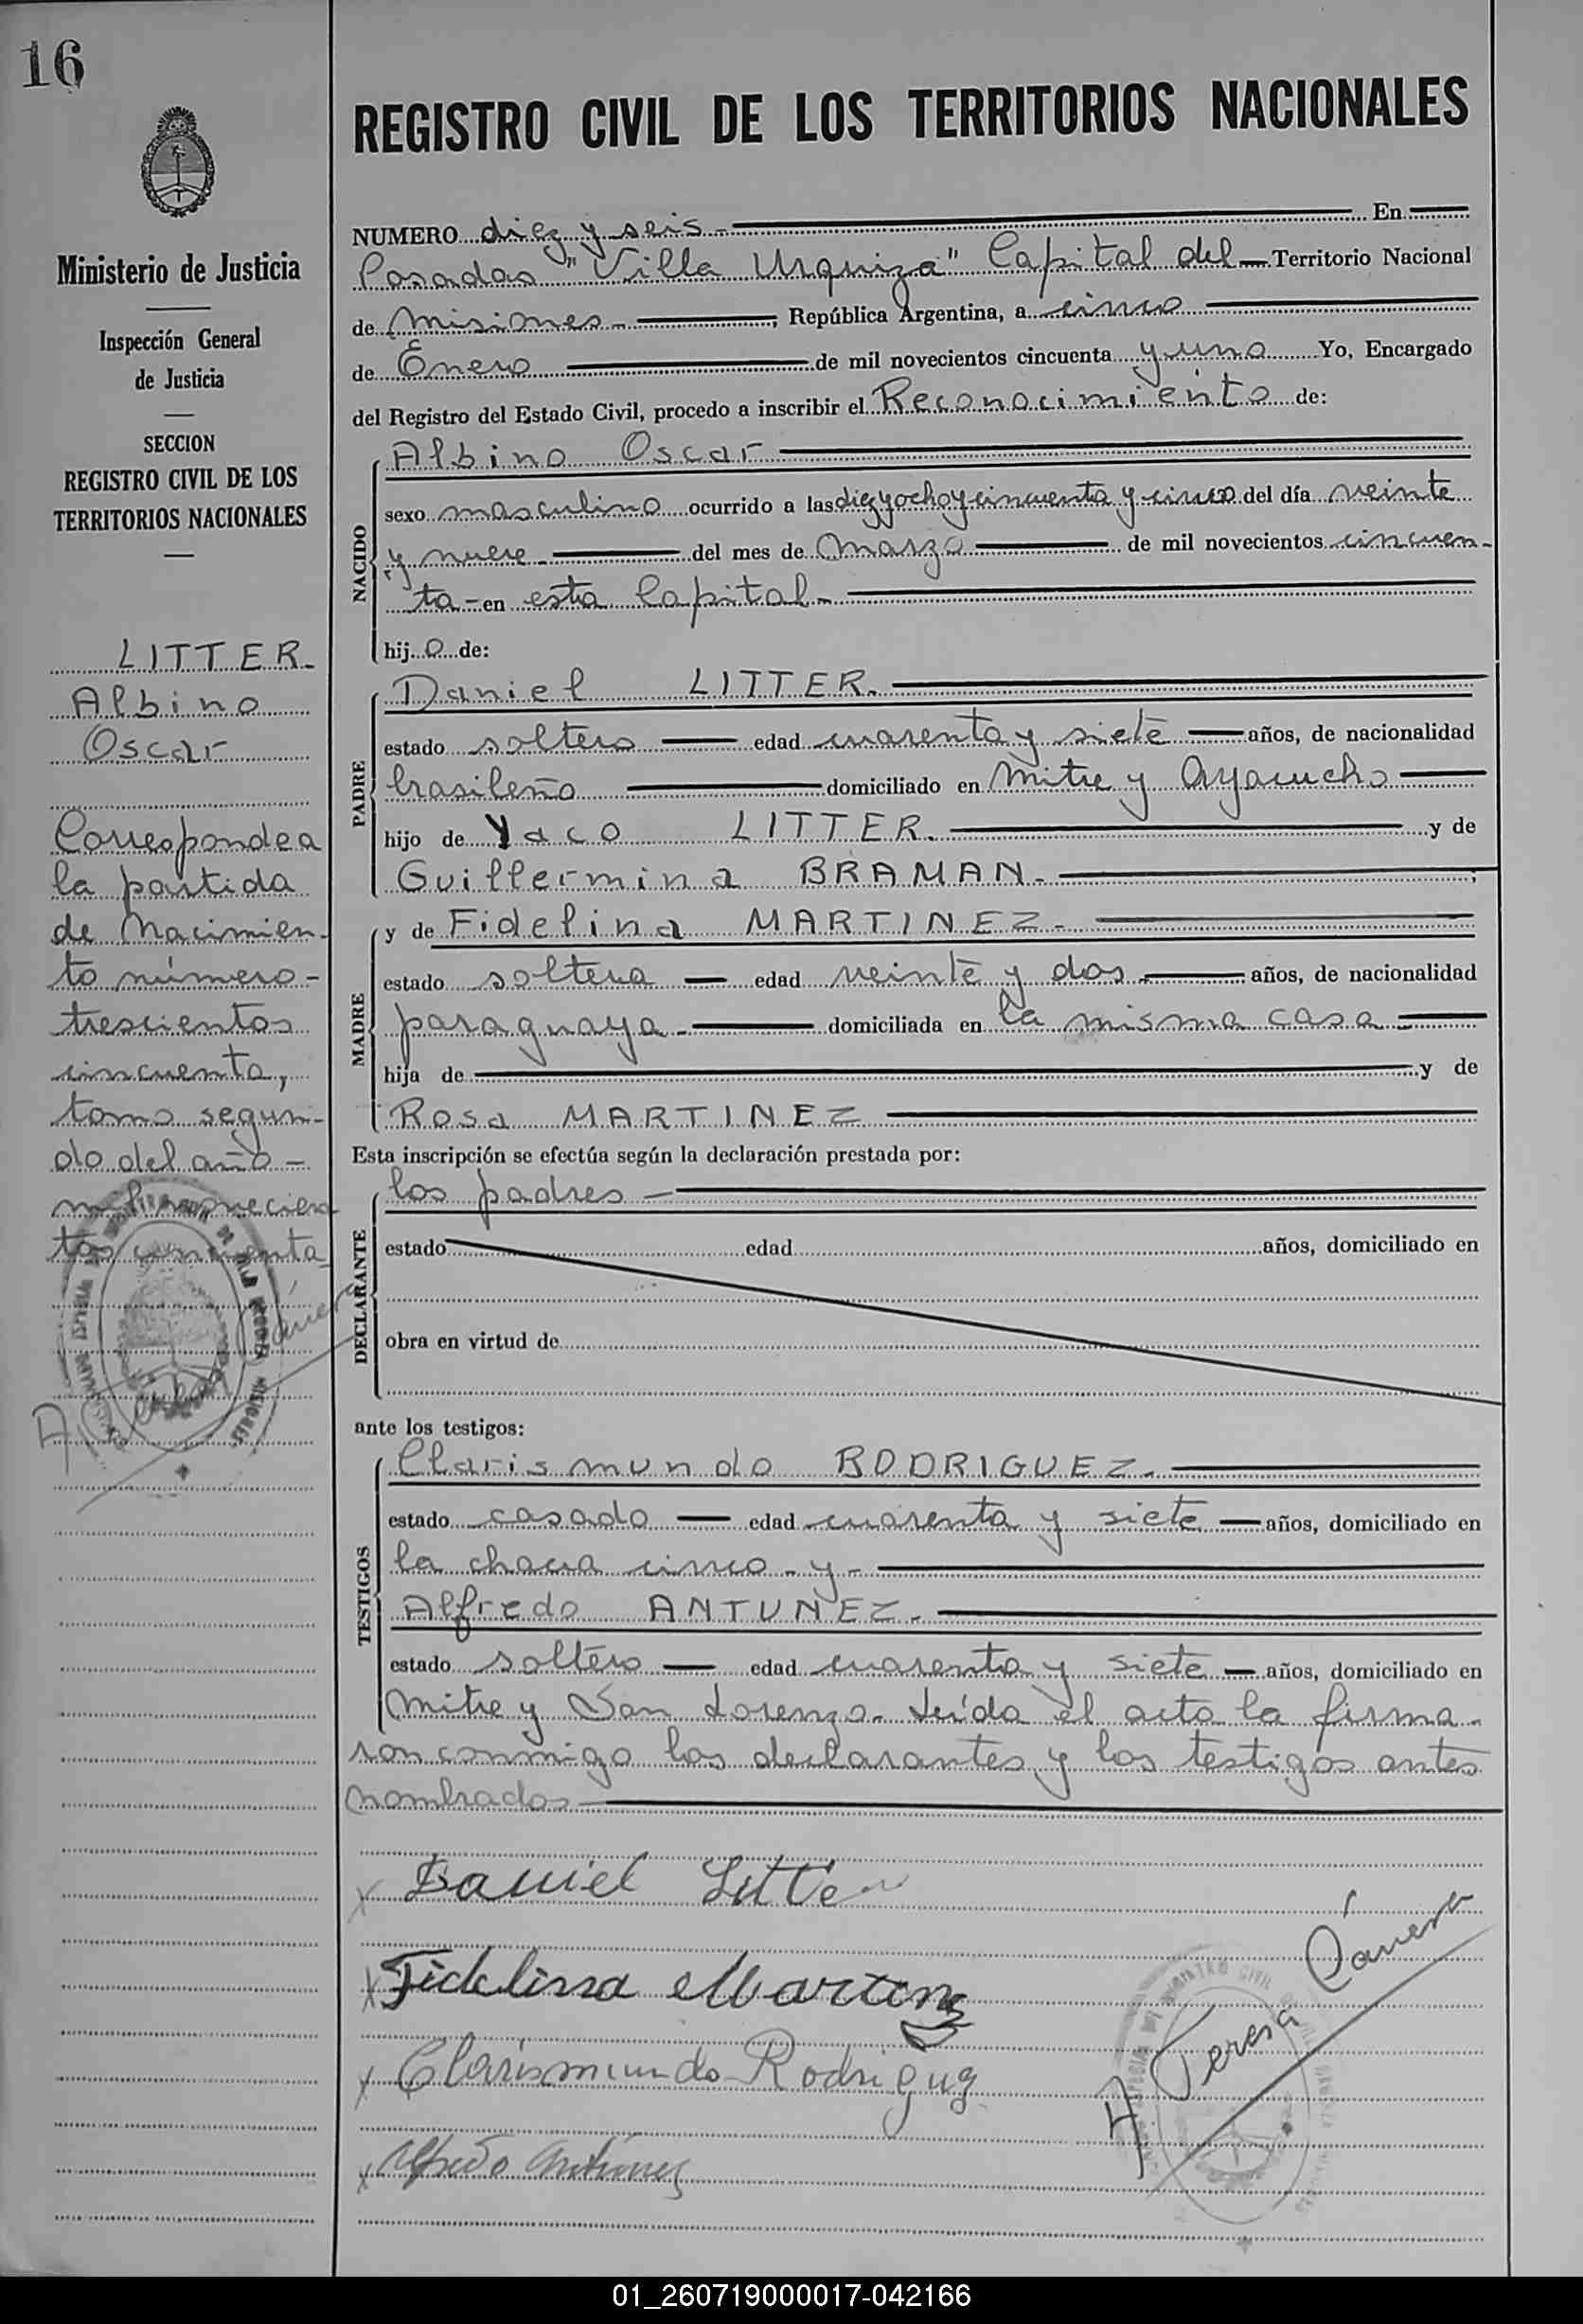 16
REGISTRO CIVIL DE LOS TERRITORIOS NACIONALES
Ministerio de Justicia
Inspección General
de Justicia
SECCION
REGISTRO CIVIL DE LOS
TERRITORIOS NACIONALES
LITTER
Albino
Oscar
Corresponde a
la partida
de Nacimien-
to número-
trescientos
cincuenta,
tomo segun-
do del año-
mil novecien
tos cincuenta
NUMERO diez y seis.- En
Posadas "Villa Urquiza" Capital del Territorio Nacional
de Misiones.- , República Argentina, a cinco
de Enero de mil novecientos cincuenta y uno Yo, Encargado
del Registro del Estado Civil, procedo a inscribir el Reconocimiento de:
NACIDO
Albino Oscar
sexo masculino ocurrido a las diez y ocho y cincuenta y cinco del día veinte
y nueve del mes de Marzo de mil novecientos cincuen-
ta- en esta Capital.-
hij o de:
PADRE
Daniel LITTER.
estado soltero edad cuarenta y siete años, de nacionalidad
brasileño domiciliado en Mitre y Ayacucho
hijo de Yaco LITTER. y de
Guillermina BRAMAN.- ;
MADRE
y de Fidelina MARTINEZ.-
estado soltera edad veinte y dos años, de nacionalidad
paraguaya.- domiciliada en la misma casa
hija de y de
Rosa MARTINEZ
Esta inscripción se efectúa según la declaración prestada por:
DECLARANTE
los padres
estado edad años, domiciliado en
obra en virtud de
ante los testigos:
TESTIGOS
Clarismundo RODRIGUEZ.
estado casado edad cuarenta y siete años, domiciliado en
la chacra cinco.- y.-
Alfredo ANTUNEZ.
estado soltero edad cuarenta y siete años, domiciliado en
Mitre y San Lorenzo. Leída el acta la firma-
ron conmigo los declarantes y los testigos antes
nombrados
x Daniel Litter
x Fidelina Martinez
x Clarismundo Rodriguez
x Alfredo Antunez
01_260719000017-042166